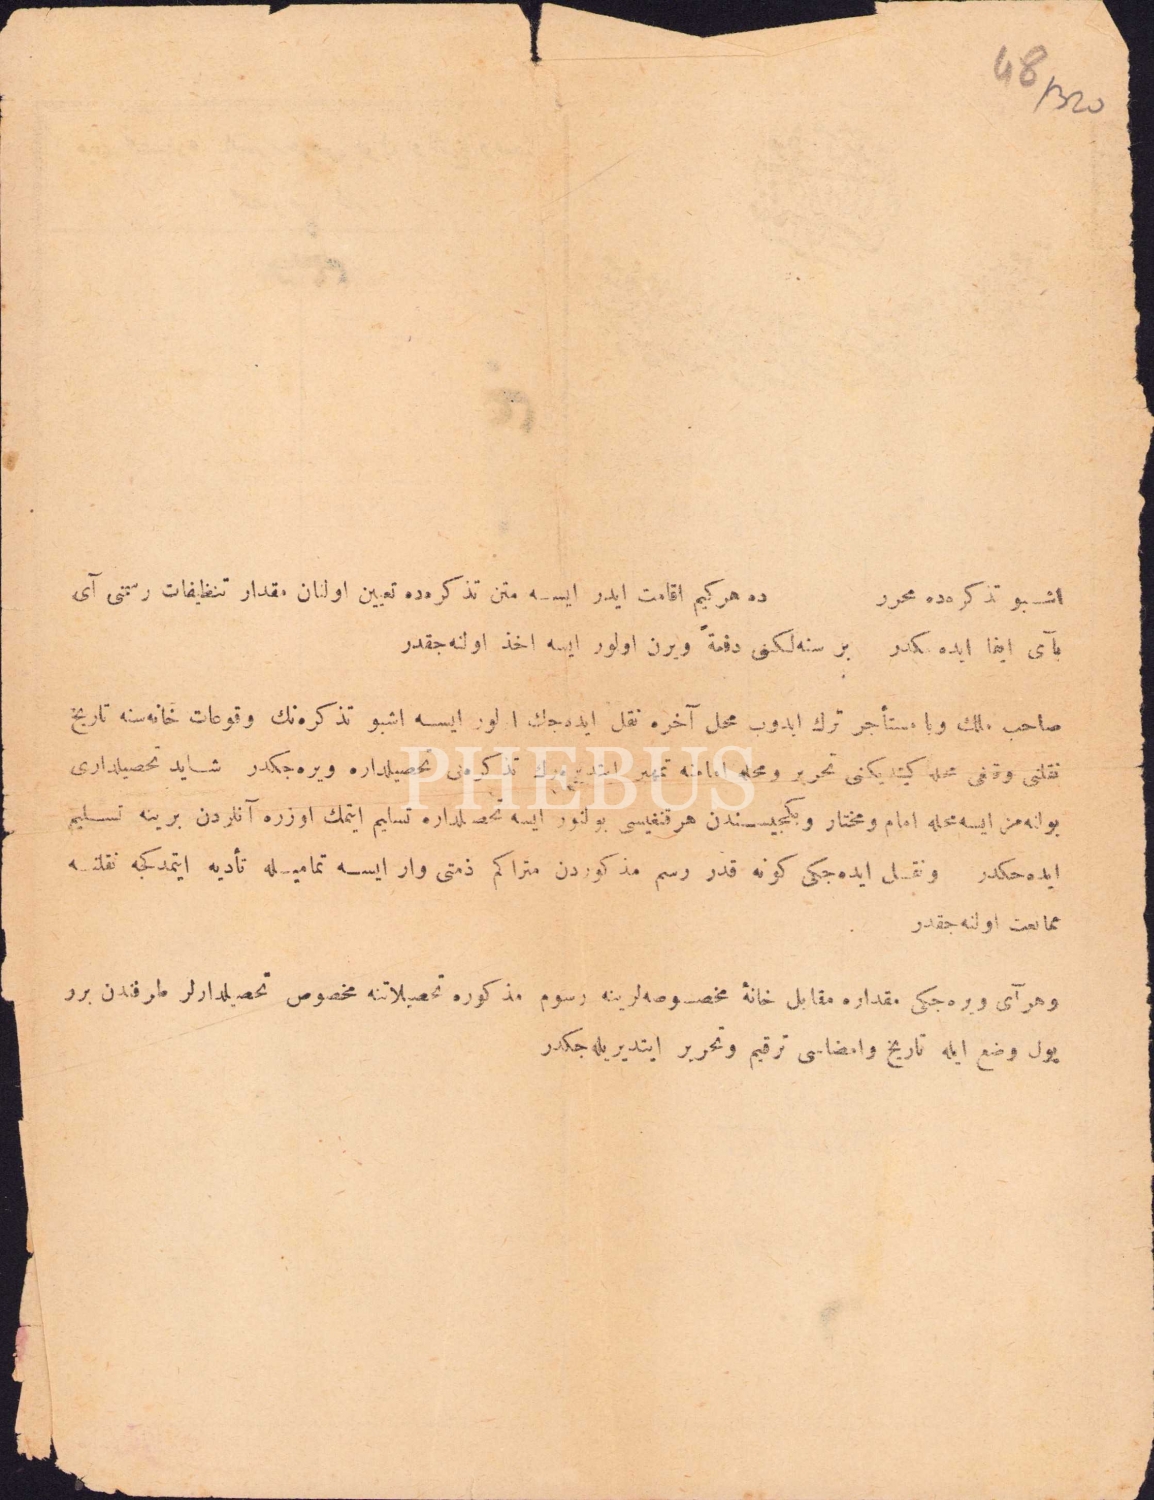 48/1320
اشبو تذكره‌ده محرر ده هركيم اقامت ايدر ايسه متن تذكره‌ده تعيين اولنان مقدار تنظيفات رسمنى آى
بآى ايفا ايده‌جكدر بر سنه‌لكنى دفعةً ويرن اولور ايسه اخذ اولنه‌جقدر
صاحب ملك ويا مستأجر ترك ايدوب محل آخره نقل ايده‌جك اولور ايسه اشبو تذكره‌نك وقوعات خانه‌سنه تاريخ
نقلنى وقنغى محله كيتديكنى تحرير ومحله امامنه تمهير ايتديره‌رك تذكره‌يى تحصيلداره ويره‌جكدر شايد تحصيلدارى
بولنه‌مز ايسه محله امام ومختار وبكجيسندن هرقنغيسى بولنور ايسه تحصيلداره تسليم ايتمك اوزره آنلردن برينه تسليم
ايده‌جكدر ونقل ايده‌جكى كونه قدر رسم مذكوردن متراكم ذمتى وار ايسه تماميله تأديه ايتمدكجه نقلنه
ممانعت اولنه‌جقدر
وهر آى ويره‌جكى مقداره مقابل خانهٔ مخصوصه‌لرينه رسوم مذكوره تحصيلاتنه مخصوص تحصيلدارلر طرفندن برر
پول وضع ايله تاريخ وامضاسى ترقيم وتحرير ايتديريله‌جكدر
PHEBUS